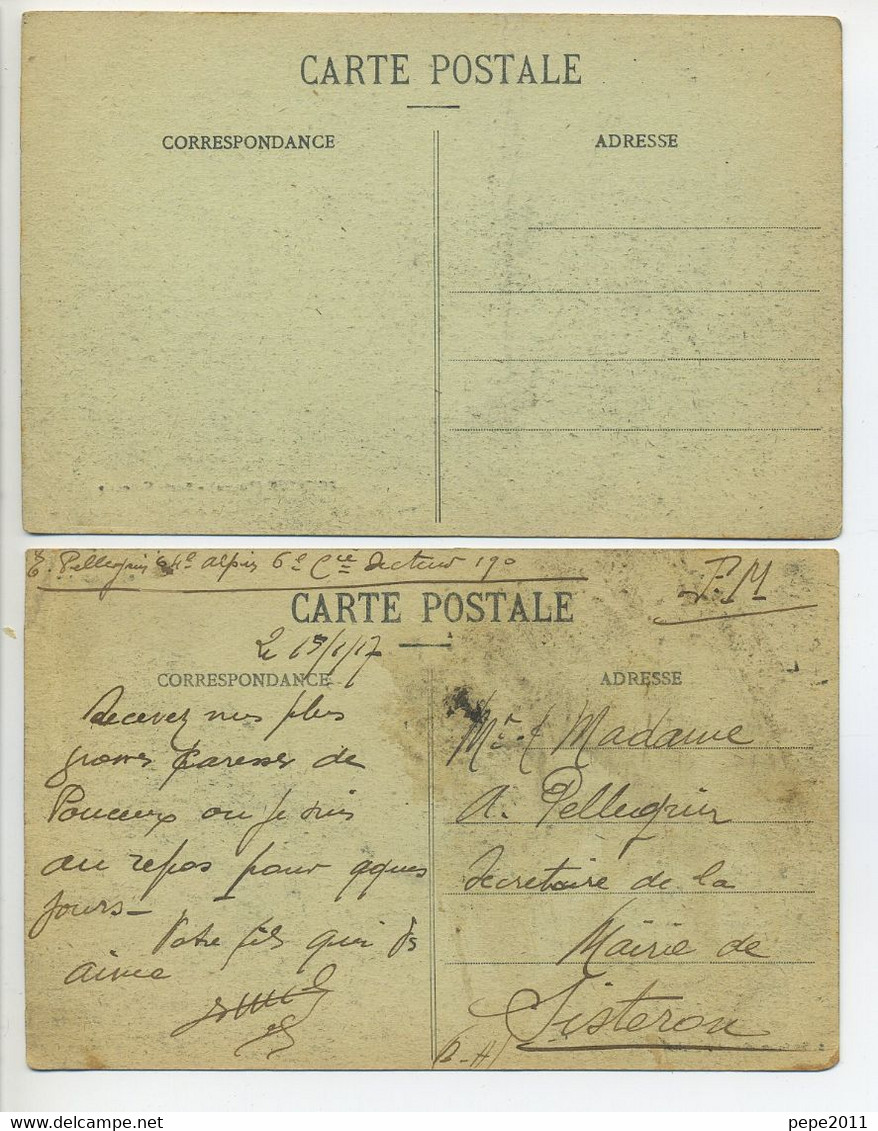 CARTE POSTALE
CORRESPONDANCE
ADRESSE
E. Pellegrin alpin 6e Cie Secteur 190
F. M
CARTE POSTALE
Le 15/1/17
CORRESPONDANCE
Recevez mes plus
grosses caresses de
Pouceux ou je suis
au repos pour qques
jours —
Votre fils qui vs
aime
ADRESSE
Mr et Madame
A. Pellegrin
Secretaire de la
Mairie de
Sisteron
(B-A)
pepe2011